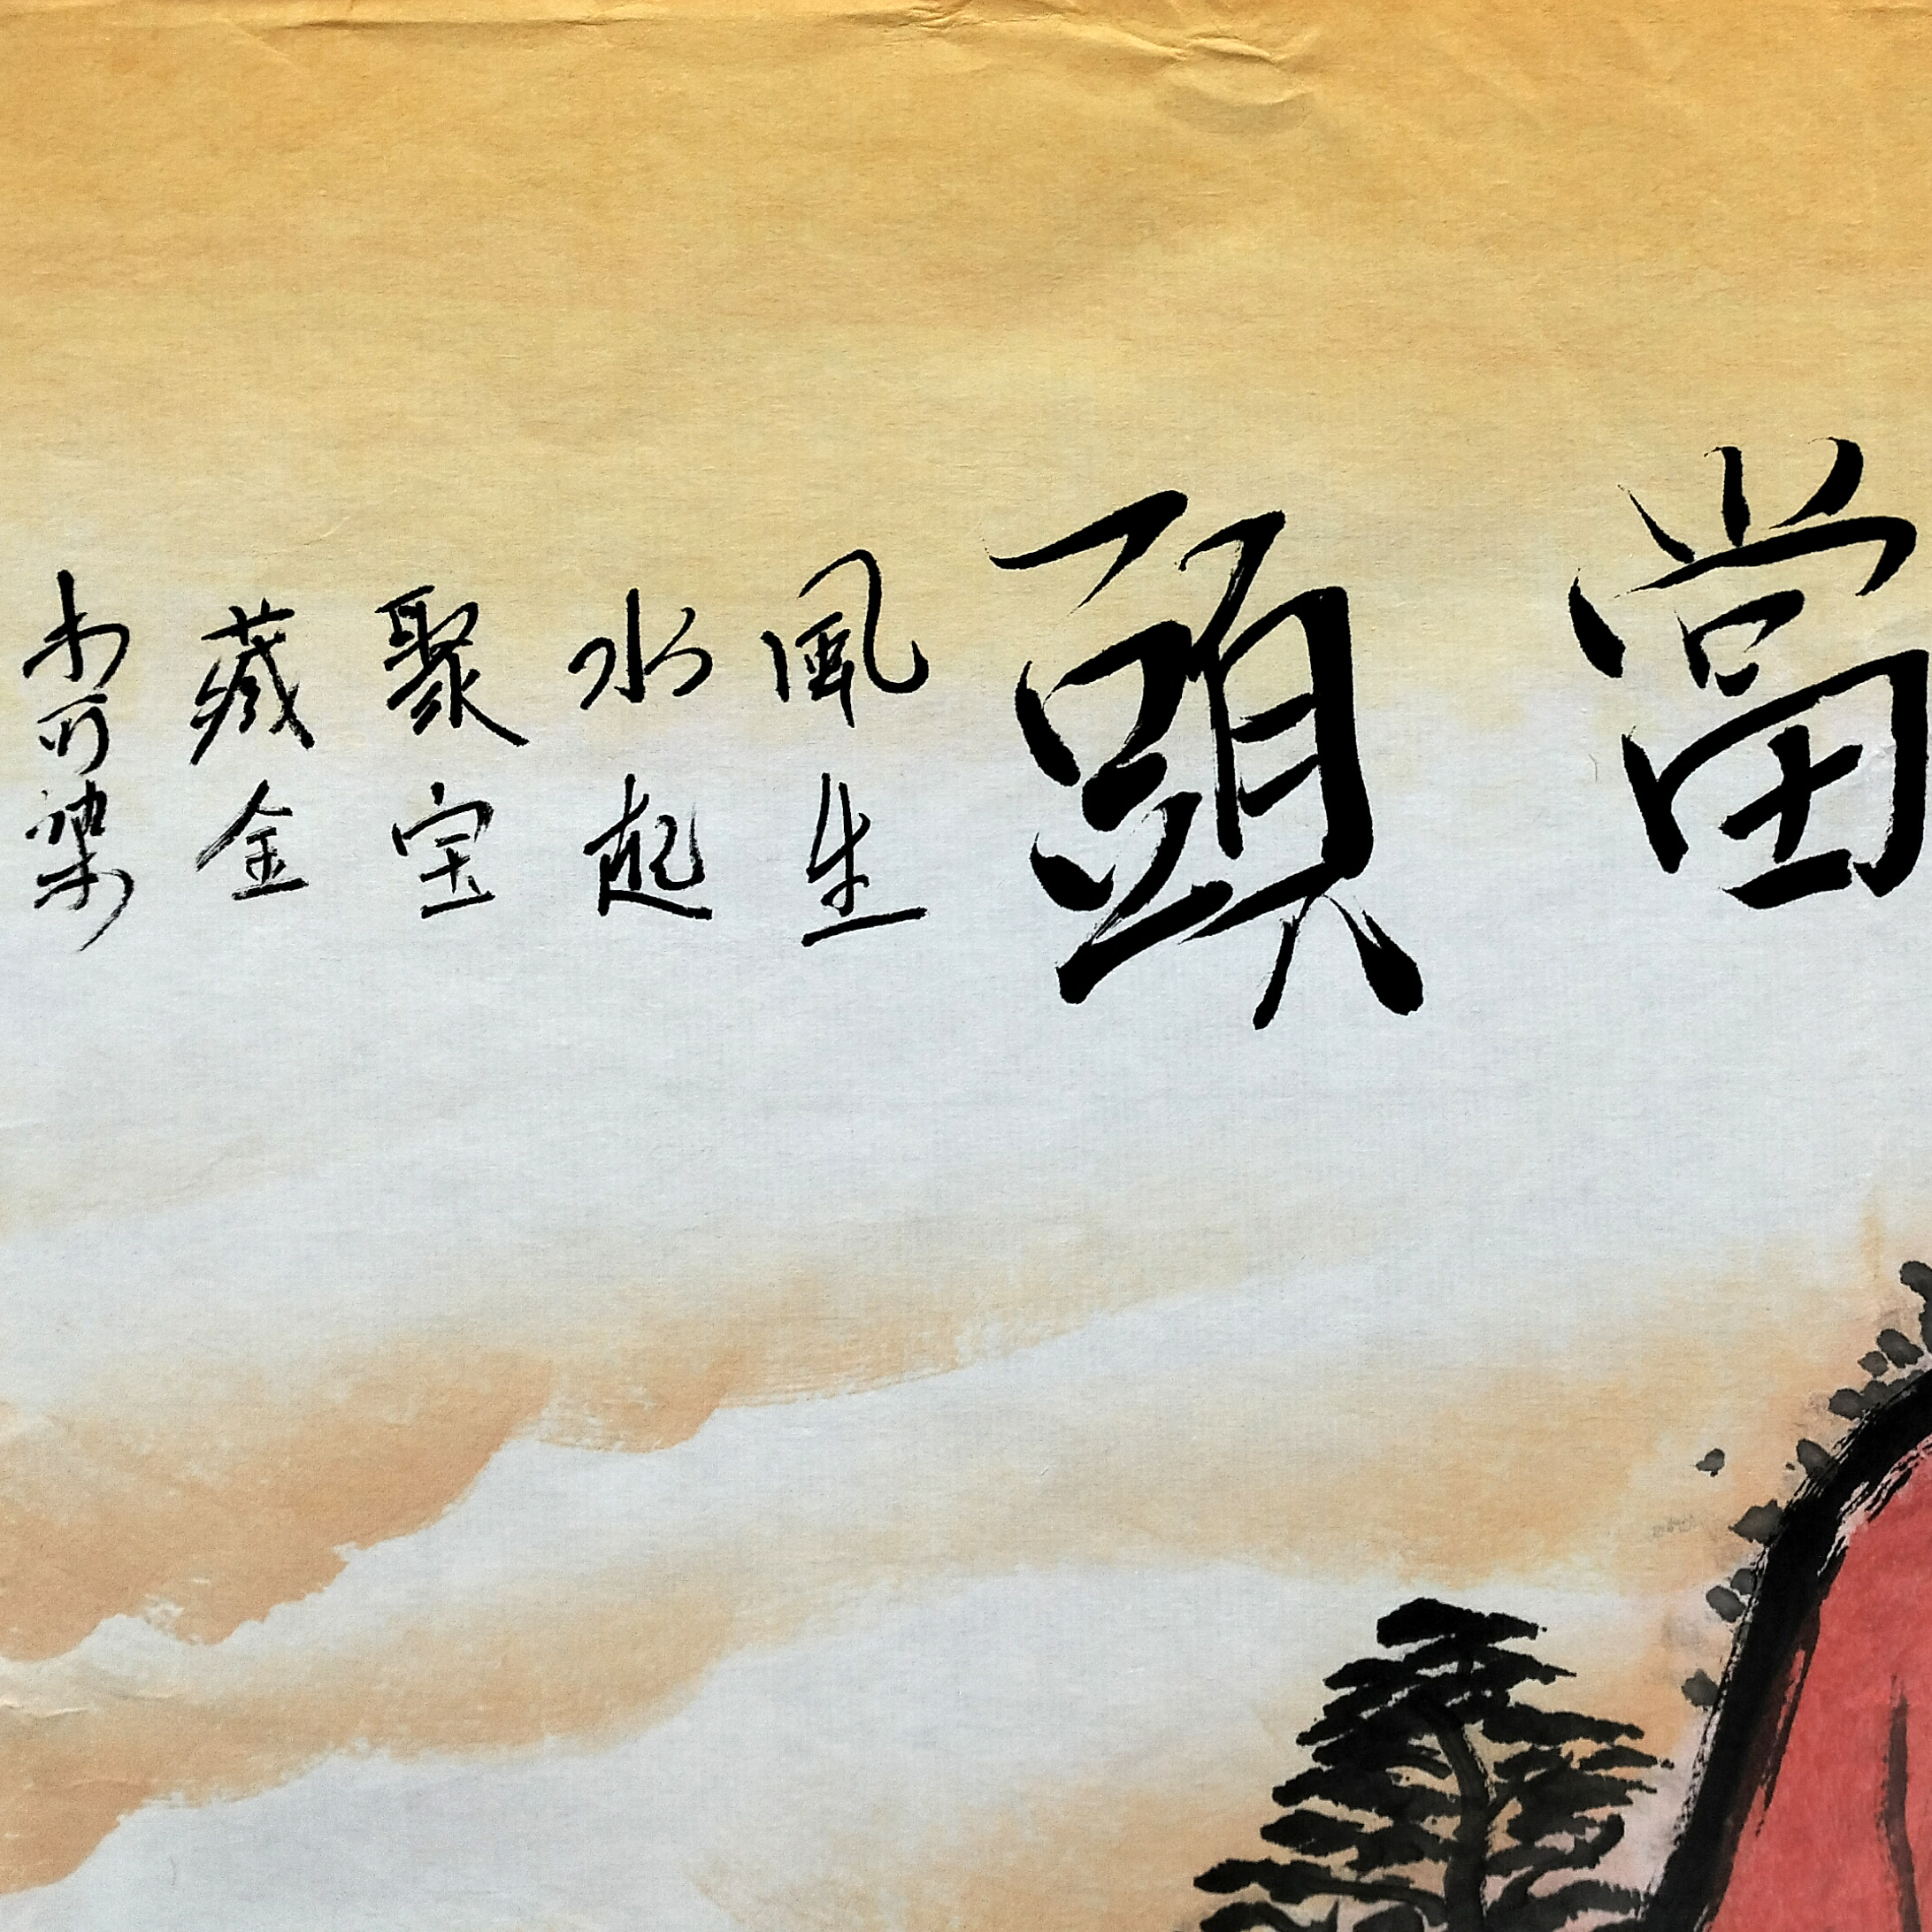 當頭
風生
水起
聚宝
藏金
可染